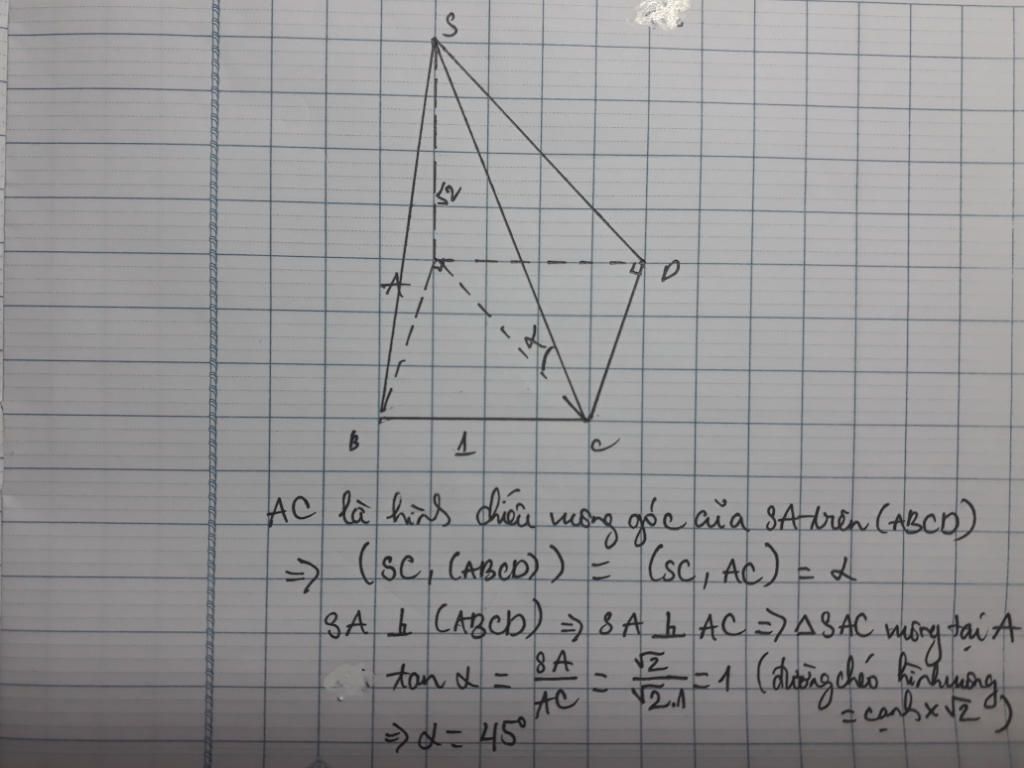 S
√2
A
D
α
B
1
C
AC là hình chiếu vuông góc của SA trên (ABCD)
=> (SC, (ABCD)) = (SC, AC) = α
SA ⊥ (ABCD) => SA ⊥ AC => ΔSAC vuông tại A
: tan α = SA/AC = √2/√2.1 = 1 (đường chéo hình vuông
= cạnh × √2)
=> α = 45°